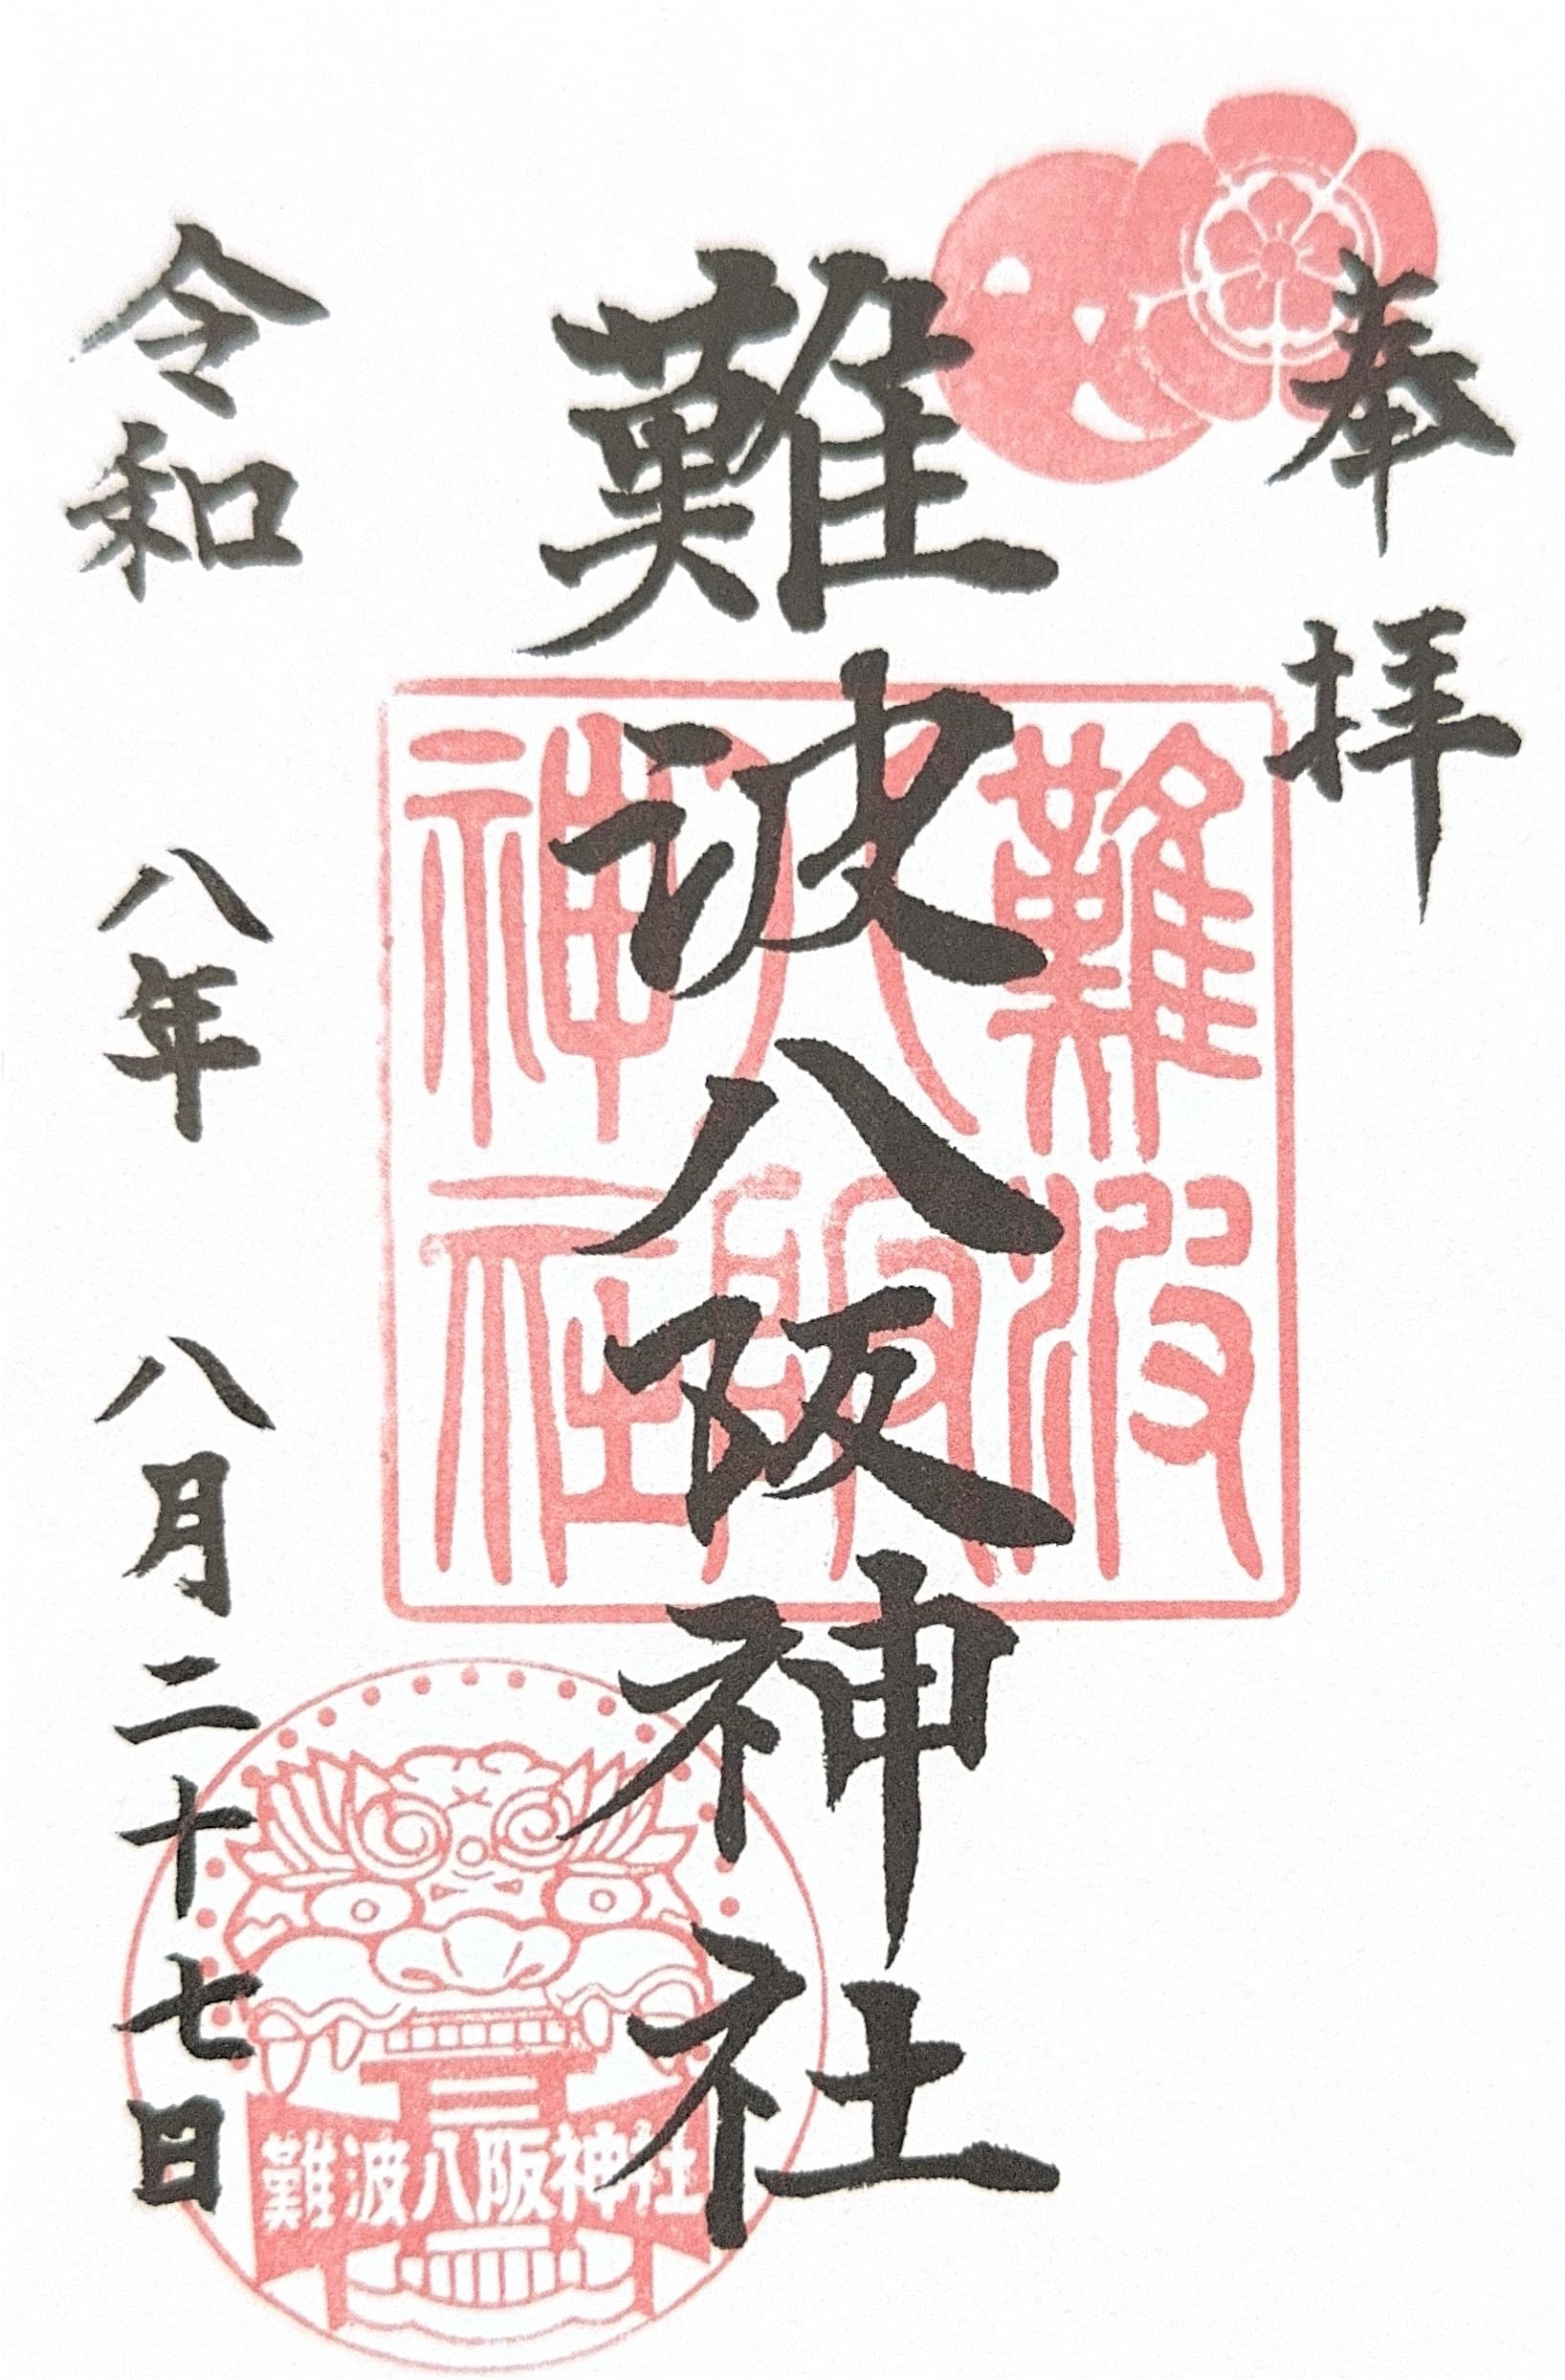 奉拝
難波八阪神社
難波
八阪
神社
令和 八年 八月二十七日
難波八阪神社